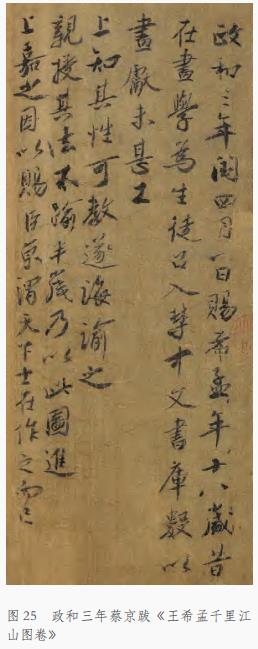 政和三年閏四月一日賜希孟年十八歲昔
在畫學為生徒召入禁中文書庫數以
畫獻未甚工
上知其性可教遂誨諭之
親授其法不踰半歲乃以此圖進
上嘉之因以賜臣京謂天下士在作之而已
图 25 政和三年蔡京跋《王希孟千里江
山图卷》